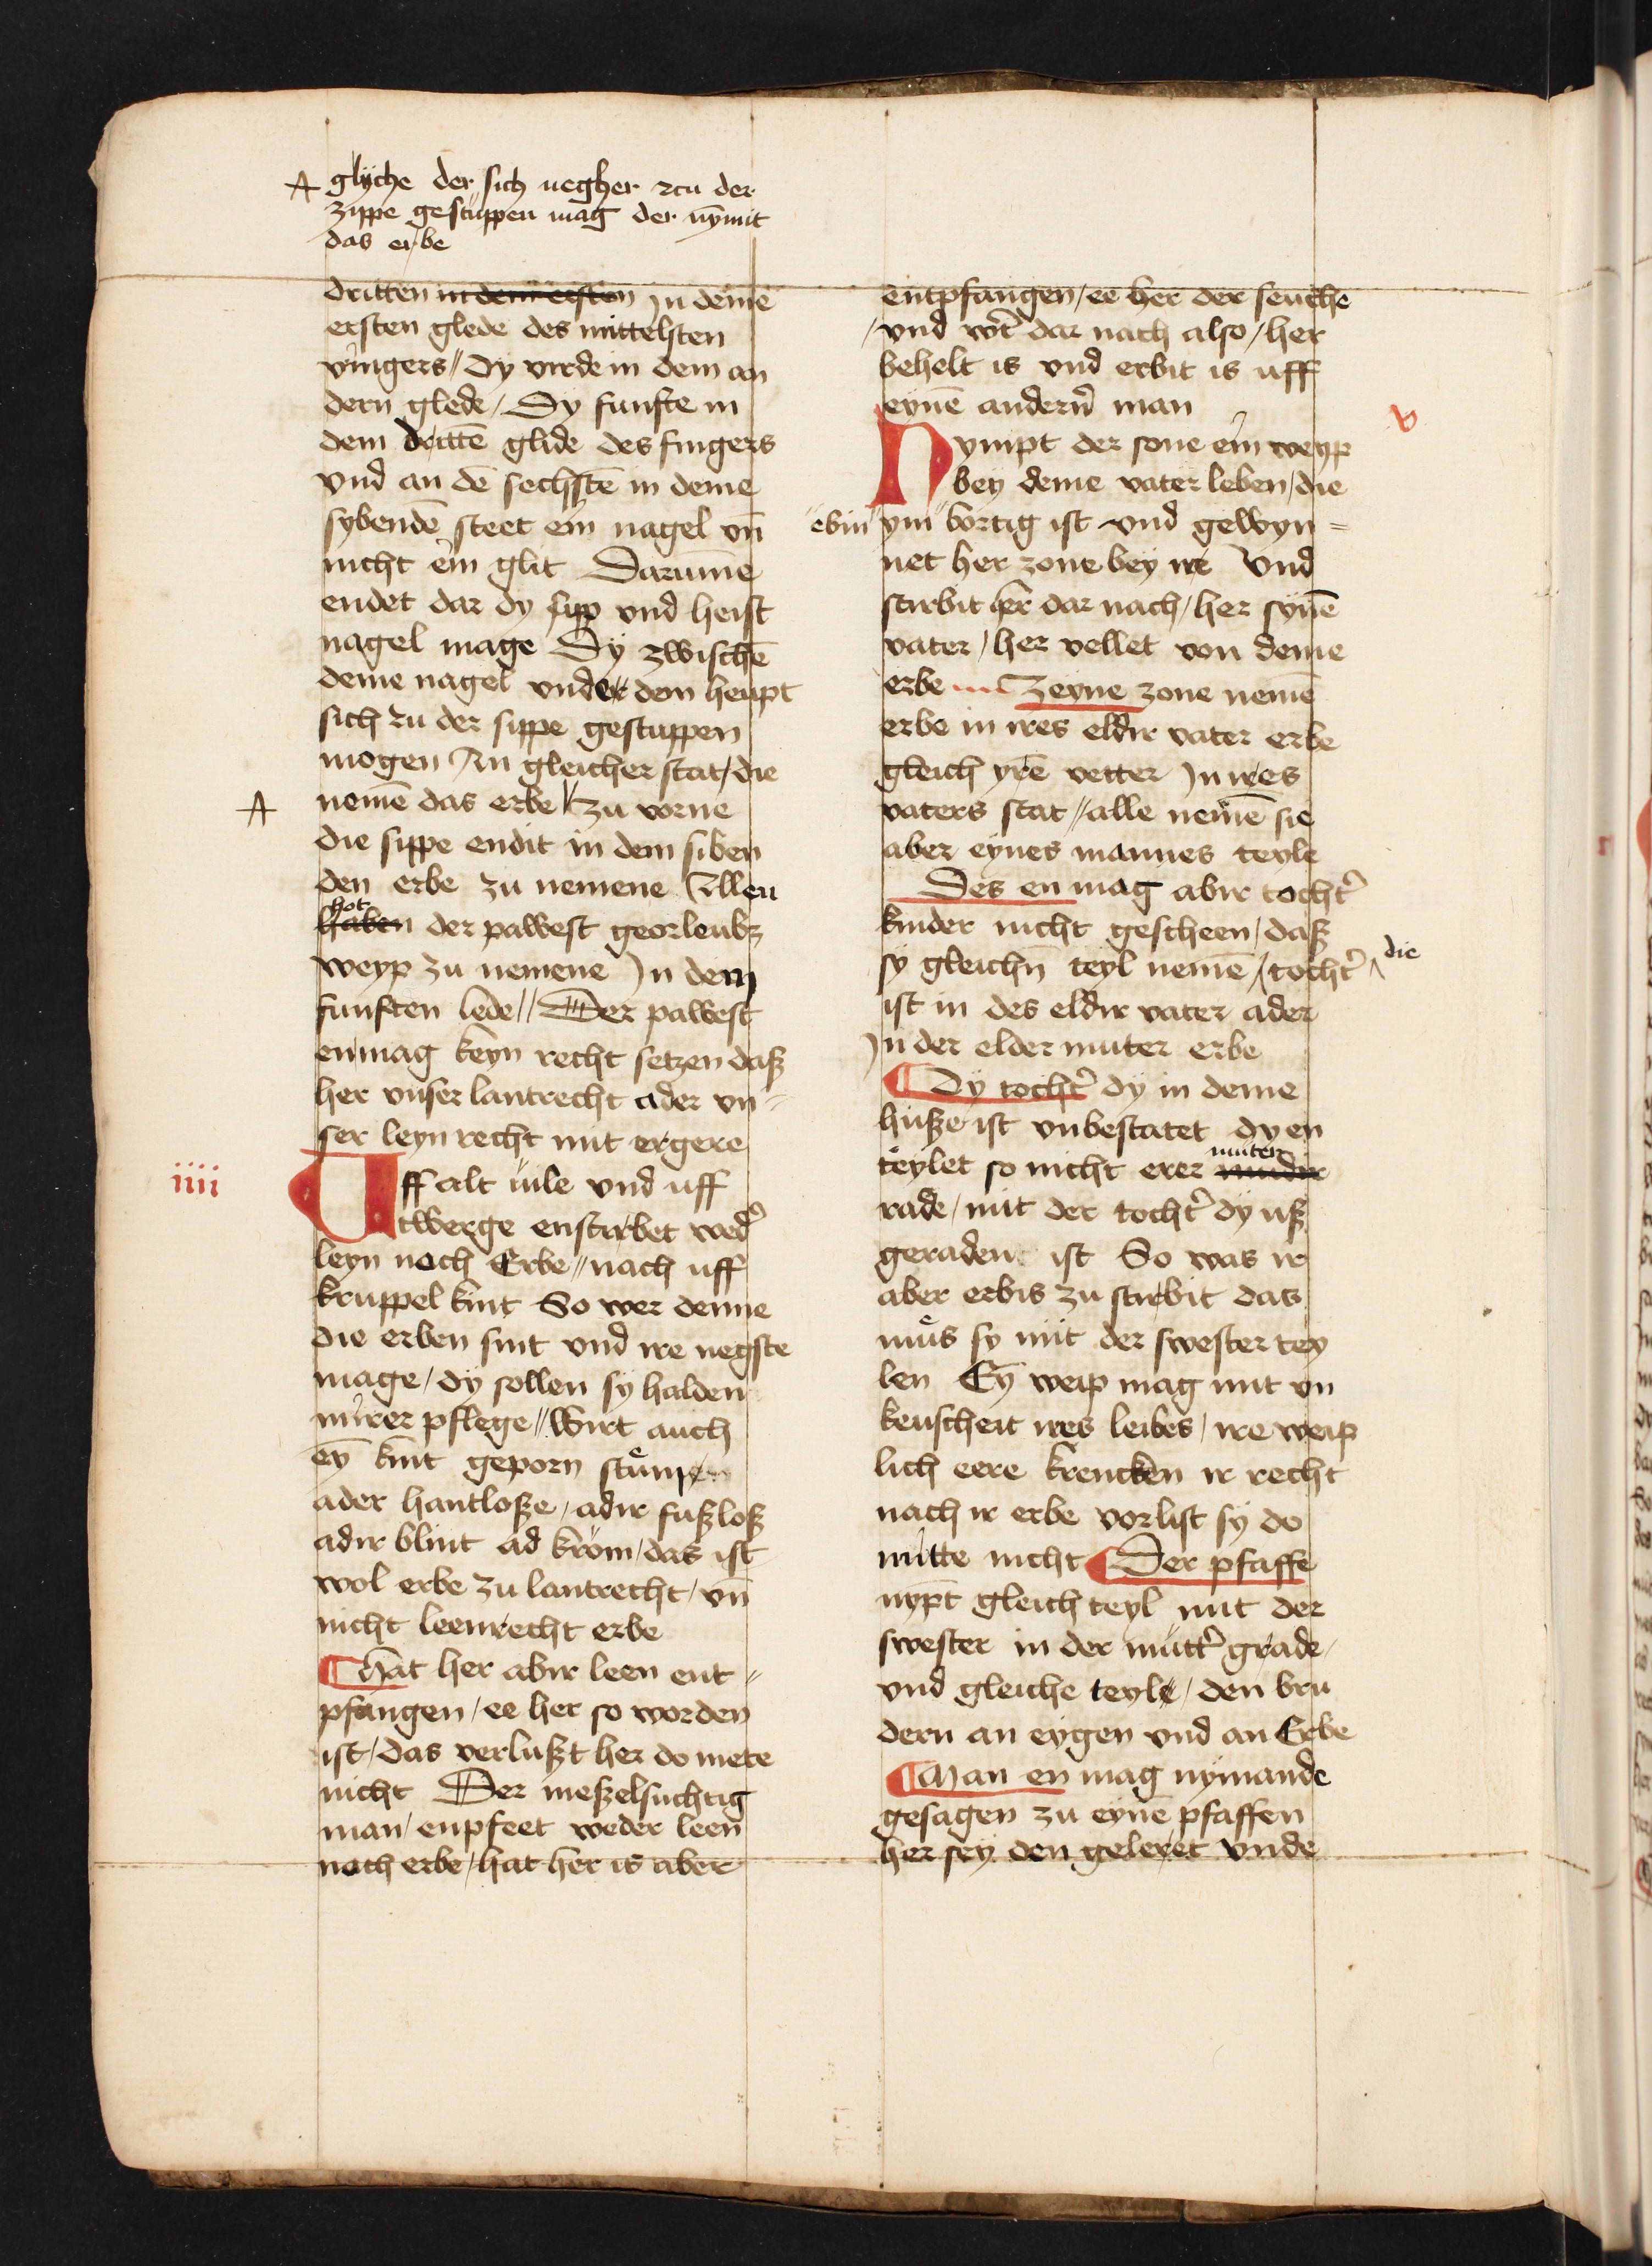 A glyche der sich negher zcu der
zippe gestuppen mag der nÿmit
das erbe
dritten in dem ersten Jn deme
ersten glede des mittelsten
vingers // dy virde in dem an
dern glede / Dy funfte in
dem drittē glide des fingers
vnd an dē sechstē in deme
sybendē steet ein nagel vn̄
nicht ein glit Darumme
endet dar dy sipp vnd heist
nagel mage Dÿ zwischē
deme nagel vnder dem heupt
sich zu der sippe gestuppen
mogen An gleicher stat / die
A
nemē das erbe // zu vorne
die sippe endit in dem siben
den erbe zu nemene Allen
hot
haben der pawest georleubt
weyp zu nemene Jn dem
funften lede // Der pawest
enmag keyn recht setzen daß
her vnser lantrecht ader vn=
ser leyn recht mit ergere
iiii
Uff alt uile vnd uff
twerge enstirbet wed᾽
leyn noch Erbe // nach uff
kruppel kint So wer denne
die erben sint vnd ire negste
mage / dÿ sollen sÿ halden
in irer pflege // Wirt auch
eȳ kint geporn stůmpe
ader hantloße / adir fußloß
adir blint ad krom / das ist
wol erbe zu lantrecht / vn̄
nicht leenrecht erbe
Hat her abir leen ent=
pfangen / ee her so worden
ist / das verlußt her do mete
nicht Der meßelsuchtig
man / enpfeet weder leen
noch erbe / hat her is aber
entpfangen / ee her der seuche
/ vnd wt᾽ dar nach also / her
behelt is vnd erbit is uff
eynē andern᾽ man
v
Nympt der sone ein weyp
bey deme vater leben / die
ebin ym bortig ist vnd gewyn=
net her zone bey ire Vnd
stirbit her dar nach / her synē
vater / her vellet von deme
erbe Zeyne zone nemē
erbe in ires eldir vater erbe
gleich yrē vetter Jn ires
vaters stat // alle nemē sie
aber eynes mannes teyle
Des en mag abir tocht᾽
kinder nicht gescheen / daß
sy gleichn̄ teyl nemē / tocht᾽ die
ist in des eldir vater ader
Jn der elder muter erbe
Dÿ tocht᾽ dÿ in deme
huße ist vnbestatet dy en
muter
teylet so nicht erer muder
rade / mit der tocht᾽ dÿ uß
geraden ist So was ir
aber erbis zu stirbit das
můs sy mit der swester tey
len Eȳ weip mag mit vn
keuscheit ires leibes / ire weip
lich eere krencken ir recht
nach ir erbe vorlist sÿ do
mitte nicht Der pfaffe
nypt gleich teyl mit der
swester in der mutt᾽ grade /
vnd gleiche teyle / den bru
dern an eygen vnd an Erbe
Man en mag nÿmande
gesagen zu eynē pfaffen
her sey den geleret vnde